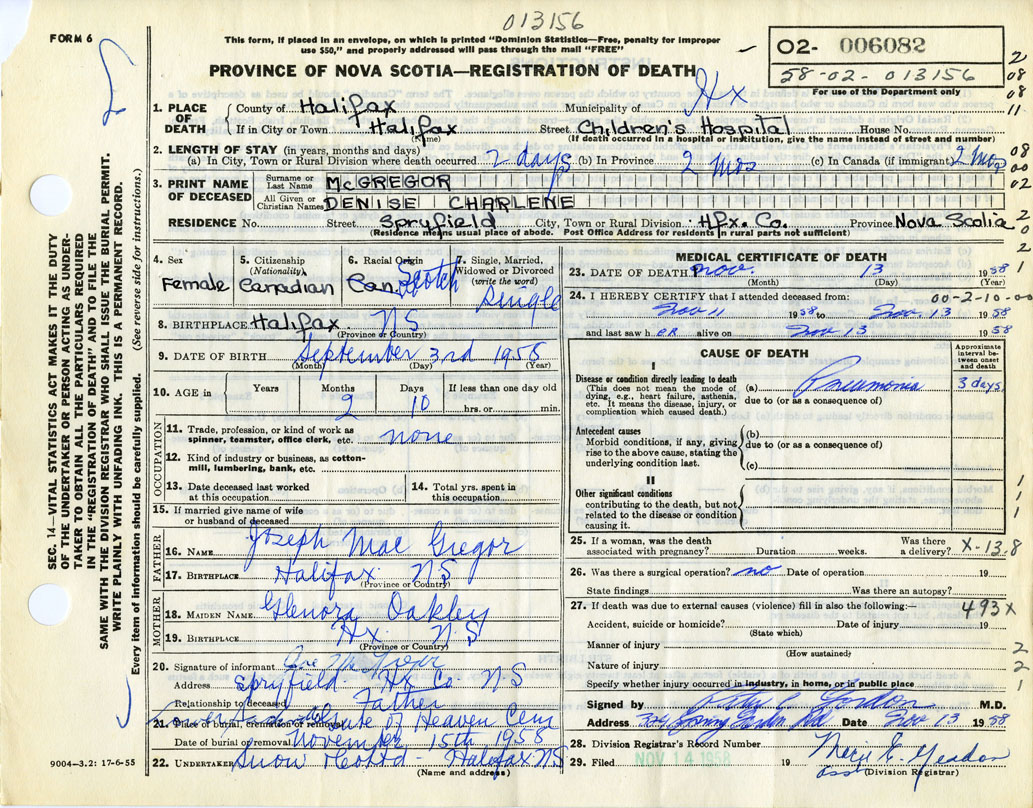 013156
FORM 6
This form, if placed in an envelope, on which is printed "Dominion Statistics—Free, penalty for improper
use $50," and properly addressed will pass through the mail "FREE"
02- 006082
58-02-013156
For use of the Department only
PROVINCE OF NOVA SCOTIA—REGISTRATION OF DEATH
Hx
1. PLACE OF DEATH
County of Halifax Municipality of
If in City or Town Halifax Street Children's Hospital House No.
(Name) (If death occurred in a hospital or institution, give the name instead of street and number)
2. LENGTH OF STAY (in years, months and days)
(a) In City, Town or Rural Division where death occurred 2 days (b) In Province 2 mos (c) In Canada (if immigrant) 2 mos
3. PRINT NAME OF DECEASED
Surname or Last Name McGREGOR
All Given or Christian Names DENISE CHARLENE
RESIDENCE No. Street Spryfield City, Town or Rural Division Hfx. Co. Province Nova Scotia
(Residence means usual place of abode. Post Office Address for residents in rural parts not sufficient)
4. Sex Female
5. Citizenship (Nationality) Canadian
6. Racial Origin Can. Scotch
7. Single, Married, Widowed or Divorced (write the word) Single
8. BIRTHPLACE Halifax NS
(Province or Country)
9. DATE OF BIRTH September 3rd 1958
(Month) (Day) (Year)
10. AGE in Years Months Days If less than one day old
2 10 hrs. or min.
OCCUPATION
11. Trade, profession, or kind of work as spinner, teamster, office clerk, etc. none
12. Kind of industry or business, as cotton-mill, lumbering, bank, etc.
13. Date deceased last worked at this occupation
14. Total yrs. spent in this occupation
15. If married give name of wife or husband of deceased
FATHER
16. NAME Joseph Mac Gregor
17. BIRTHPLACE Halifax NS
(Province or Country)
MOTHER
18. MAIDEN NAME Glenora Oakley
19. BIRTHPLACE Hx NS
(Province or Country)
20. Signature of informant
Address Spryfield Hx Co N-S
Relationship to deceased Father
21. Place of burial, cremation or removal Gate of Heaven Cem
Date of burial or removal November 15th 1958
22. UNDERTAKER Snow - Halifax NS
(Name and address)
9004—3.2: 17-6-55
SEC. 14—VITAL STATISTICS ACT MAKES IT THE DUTY
OF THE UNDERTAKER OR PERSON ACTING AS UNDER-
TAKER TO OBTAIN ALL THE PARTICULARS REQUIRED
IN THE "REGISTRATION OF DEATH" AND TO FILE THE
SAME WITH THE DIVISION REGISTRAR WHO SHALL ISSUE THE BURIAL PERMIT.
WRITE PLAINLY WITH UNFADING INK. THIS IS A PERMANENT RECORD.
Every item of information should be carefully supplied. (See reverse side for instructions.)
MEDICAL CERTIFICATE OF DEATH
23. DATE OF DEATH Nov. 13 1958
(Month) (Day) (Year)
24. I HEREBY CERTIFY that I attended deceased from: 00-2-10-00
Nov 11 1958 to Nov. 13 1958
and last saw her alive on Nov 13 1958
CAUSE OF DEATH
Approximate interval between onset and death
I
Disease or condition directly leading to death
(This does not mean the mode of dying, e.g., heart failure, asthenia, etc. It means the disease, injury, or complication which caused death.)
(a) Pneumonia 3 days
due to (or as a consequence of)
Antecedent causes
Morbid conditions, if any, giving rise to the above cause, stating the underlying condition last.
(b)
due to (or as a consequence of)
(c)
II
Other significant conditions
contributing to the death, but not related to the disease or condition causing it.
25. If a woman, was the death associated with pregnancy? Duration weeks. Was there a delivery? X-13.8
26. Was there a surgical operation? no Date of operation 19
State findings Was there an autopsy?
27. If death was due to external causes (violence) fill in also the following:— 493x
Accident, suicide or homicide? Date of injury 19
(State which)
Manner of injury
(How sustained)
Nature of injury
Specify whether injury occurred in industry, in home, or in public place
Signed by Gordon M.D.
Address Date Nov 13 1958
28. Division Registrar's Record Number
29. Filed NOV 14 1958 19
(Division Registrar)
2
08
08
11
08
00
02
2
0
2
1
1
1
1
2
2
1